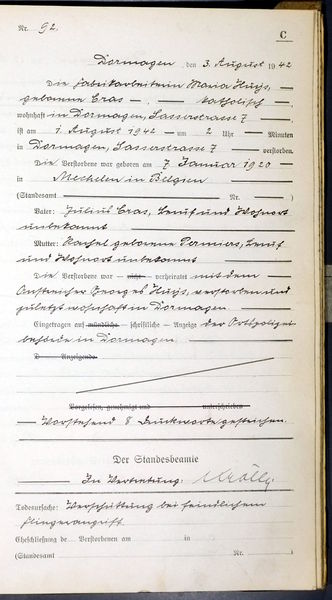 Nr. 92.
C
Dormagen, den 3. August 1942
Die Fabrikarbeiterin Maria Huys,
geborene Cras —, — katholisch —,
wohnhaft in Dormagen, Sasserstrasse 7 —
ist am 1. August 1942 — um 2 Uhr — Minuten
in Dormagen, Sasserstrasse 7 — verstorben.
Die Verstorbene war geboren am 7. Januar 1920 —
in Mechelen in Belgien
(Standesamt — Nr. —)
Vater: Julius Cras, Beruf und Wohnort
unbekannt
Mutter: Rachel geborene Beruf
und Wohnort unbekannt
Die Verstorbene war — nicht — verheiratet mit dem
Anstreicher Georges Huys, verstorben und
zuletzt wohnhaft in Dormagen.
Eingetragen auf mündliche — schriftliche — Anzeige der Ortspolizei
behörde in Dormagen
D Anzeigende
Vorgelesen, genehmigt und unterschrieben
Vorstehend 8 Druckworte gestrichen.
Der Standesbeamte
In Vertretung:
Todesursache: Verschüttung bei feindlichem
Fliegerangriff.
Eheschließung de Verstorbenen am in
(Standesamt Nr. )